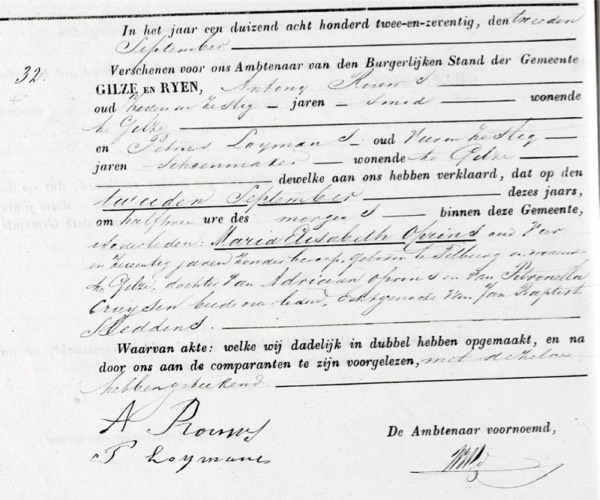 In het jaar een duizend acht honderd twee-en-zeventig, den tweeden
September
32.
Verschenen voor ons Ambtenaar van den Burgerlijken Stand der Gemeente
GILZE EN RYEN, Antony Rouws
oud zeven en zestig jaren smid wonende
te Gilze
en Petrus Loymans oud vier en zestig
jaren schoenmaker wonende te Gilze
dewelke aan ons hebben verklaard, dat op den
tweeden September dezes jaars,
om half twee ure des morgens binnen deze Gemeente,
is overleden: Maria Elisabeth Oprins oud
en zeventig jaren zonder beroep, geboren te Tilburg en wonende
te Gilze, dochter van Adriaan Oprins en van Petronella
Cruyssen beide overleden. Echtgenoote van Jan Baptist
Meddens.
Waarvan akte: welke wij dadelijk in dubbel hebben opgemaakt, en na
door ons aan de comparanten te zijn voorgelezen, met dezelve
hebben geteekend
A Rouws
P Loymans
De Ambtenaar voornoemd,